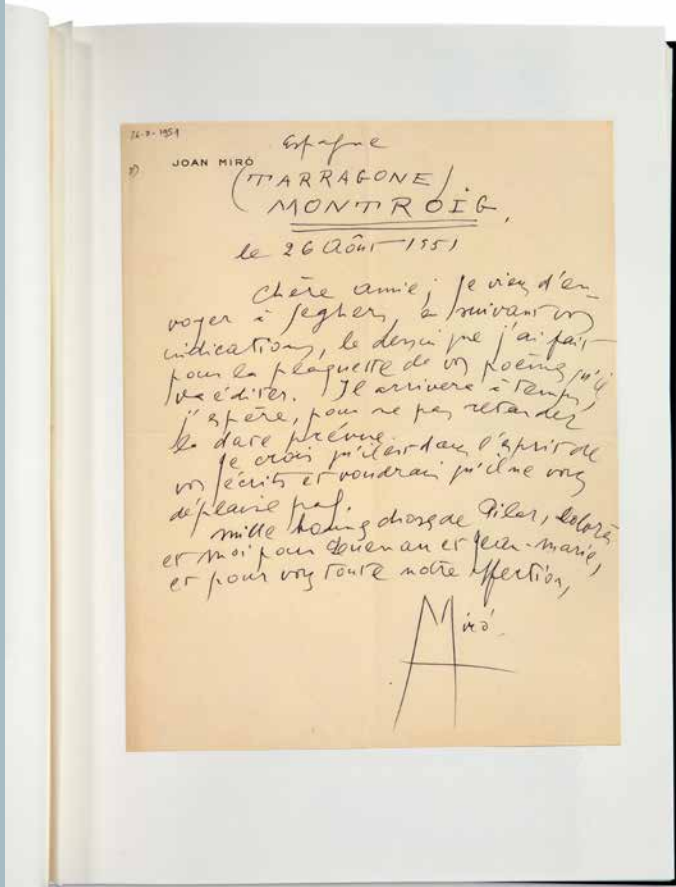 26-8-1951
Espagne
JOAN MIRÓ
(TARRAGONE)
MONTROIG,
le 26 Août 1951
Chère amie; je viens d'en-
voyer à Seghers, en suivant vos
indications, le dessin que j'ai fait
pour la plaquette de vos poèmes qu'il
va éditer. Il arrivera à temps,
j'espère, pour ne pas retarder
la date prévue.
Je crois qu'il est dans l'esprit de
vos écrits et voudrais qu'il ne vous
déplaise pas.
Mille bonnes choses de Pilar, Dolorès
et moi pour et Jean-Marie,
et pour vous toute notre affection,
Miró.